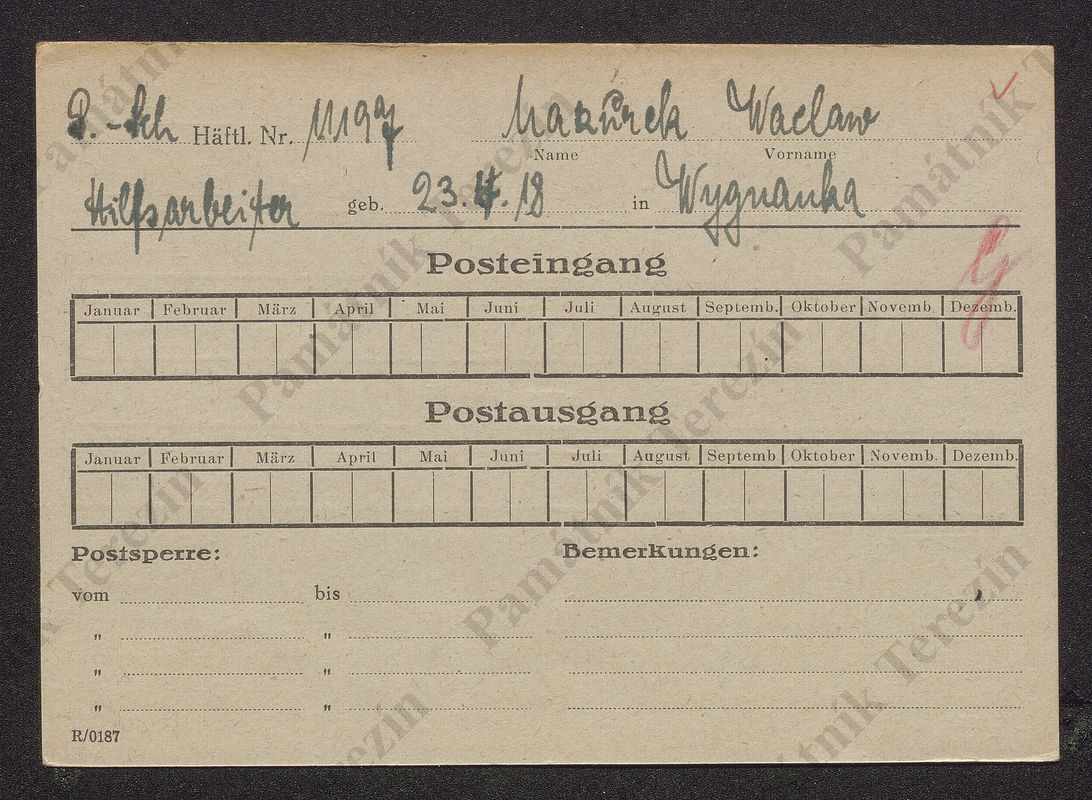 P.-Sch Häftl. Nr. 11197 Mazurek Wacław
Name Vorname
Hilfsarbeiter geb. 23.4.18 in Wygnanka
Posteingang
Januar Februar März April Mai Juni Juli August Septemb. Oktober Novemb. Dezemb.
Postausgang
Januar Februar März April Mai Juni Juli August Septemb Oktober Novemb. Dezemb.
Postsperre: Bemerkungen:
vom bis
" "
" "
" "
R/0187
Památník Terezín